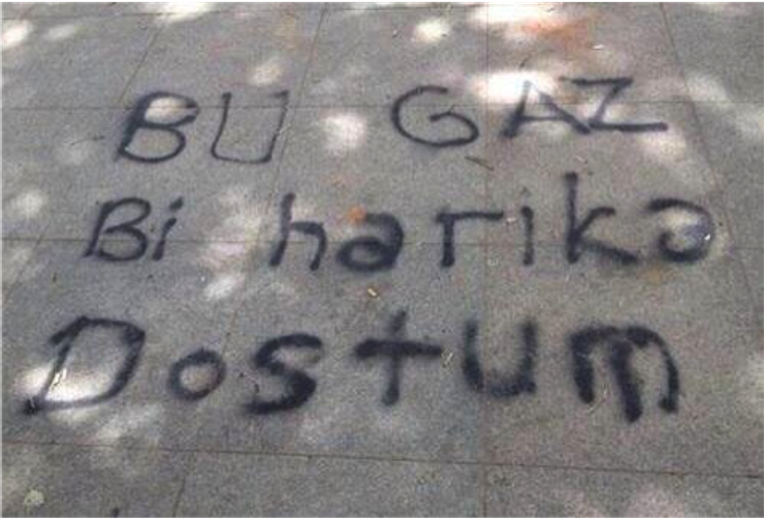 BU GAZ
Bi harika
Dostum